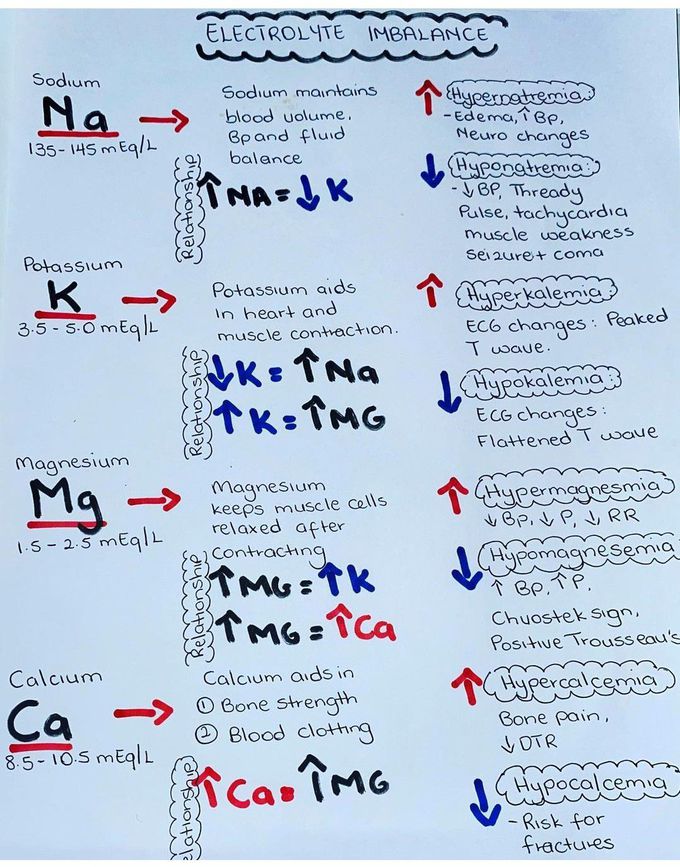 ELECTROLYTE IMBALANCE
Sodium
Na
135-145 mEq/L
Sodium maintains
blood volume,
Bp and fluid
balance
Relationship
↑NA=↓K
↑ Hypernatremia
-Edema, ↑Bp,
Neuro changes
↓ Hyponatremia:
-↓BP, Thready
Pulse, tachycardia
muscle weakness
seizure+ coma
Potassium
K
3.5-5.0 mEq/L
Potassium aids
in heart and
muscle contraction.
Relationship
↓K=↑Na
↑K=↑MG
↑ Hyperkalemia:
ECG changes: Peaked
T wave.
↓ Hypokalemia:
ECG changes:
Flattened T wave
Magnesium
Mg
1.5-2.5 mEq/L
Magnesium
keeps muscle cells
relaxed after
contracting
Relationship
↑MG=↑K
↑MG=↑Ca
↑ Hypermagnesmia
↓BP, ↓P, ↓RR
↓ Hypomagnesemia
↑ Bp, ↑P,
Chvostek sign,
Positive Trousseau's
Calcium
Ca
8.5-10.5 mEq/L
Calcium aids in
① Bone strength
② Blood clotting
Relationship
↑Ca=↑MG
↑ Hypercalcemia
Bone pain,
↓DTR
↓ Hypocalcemia
-Risk for
fractures